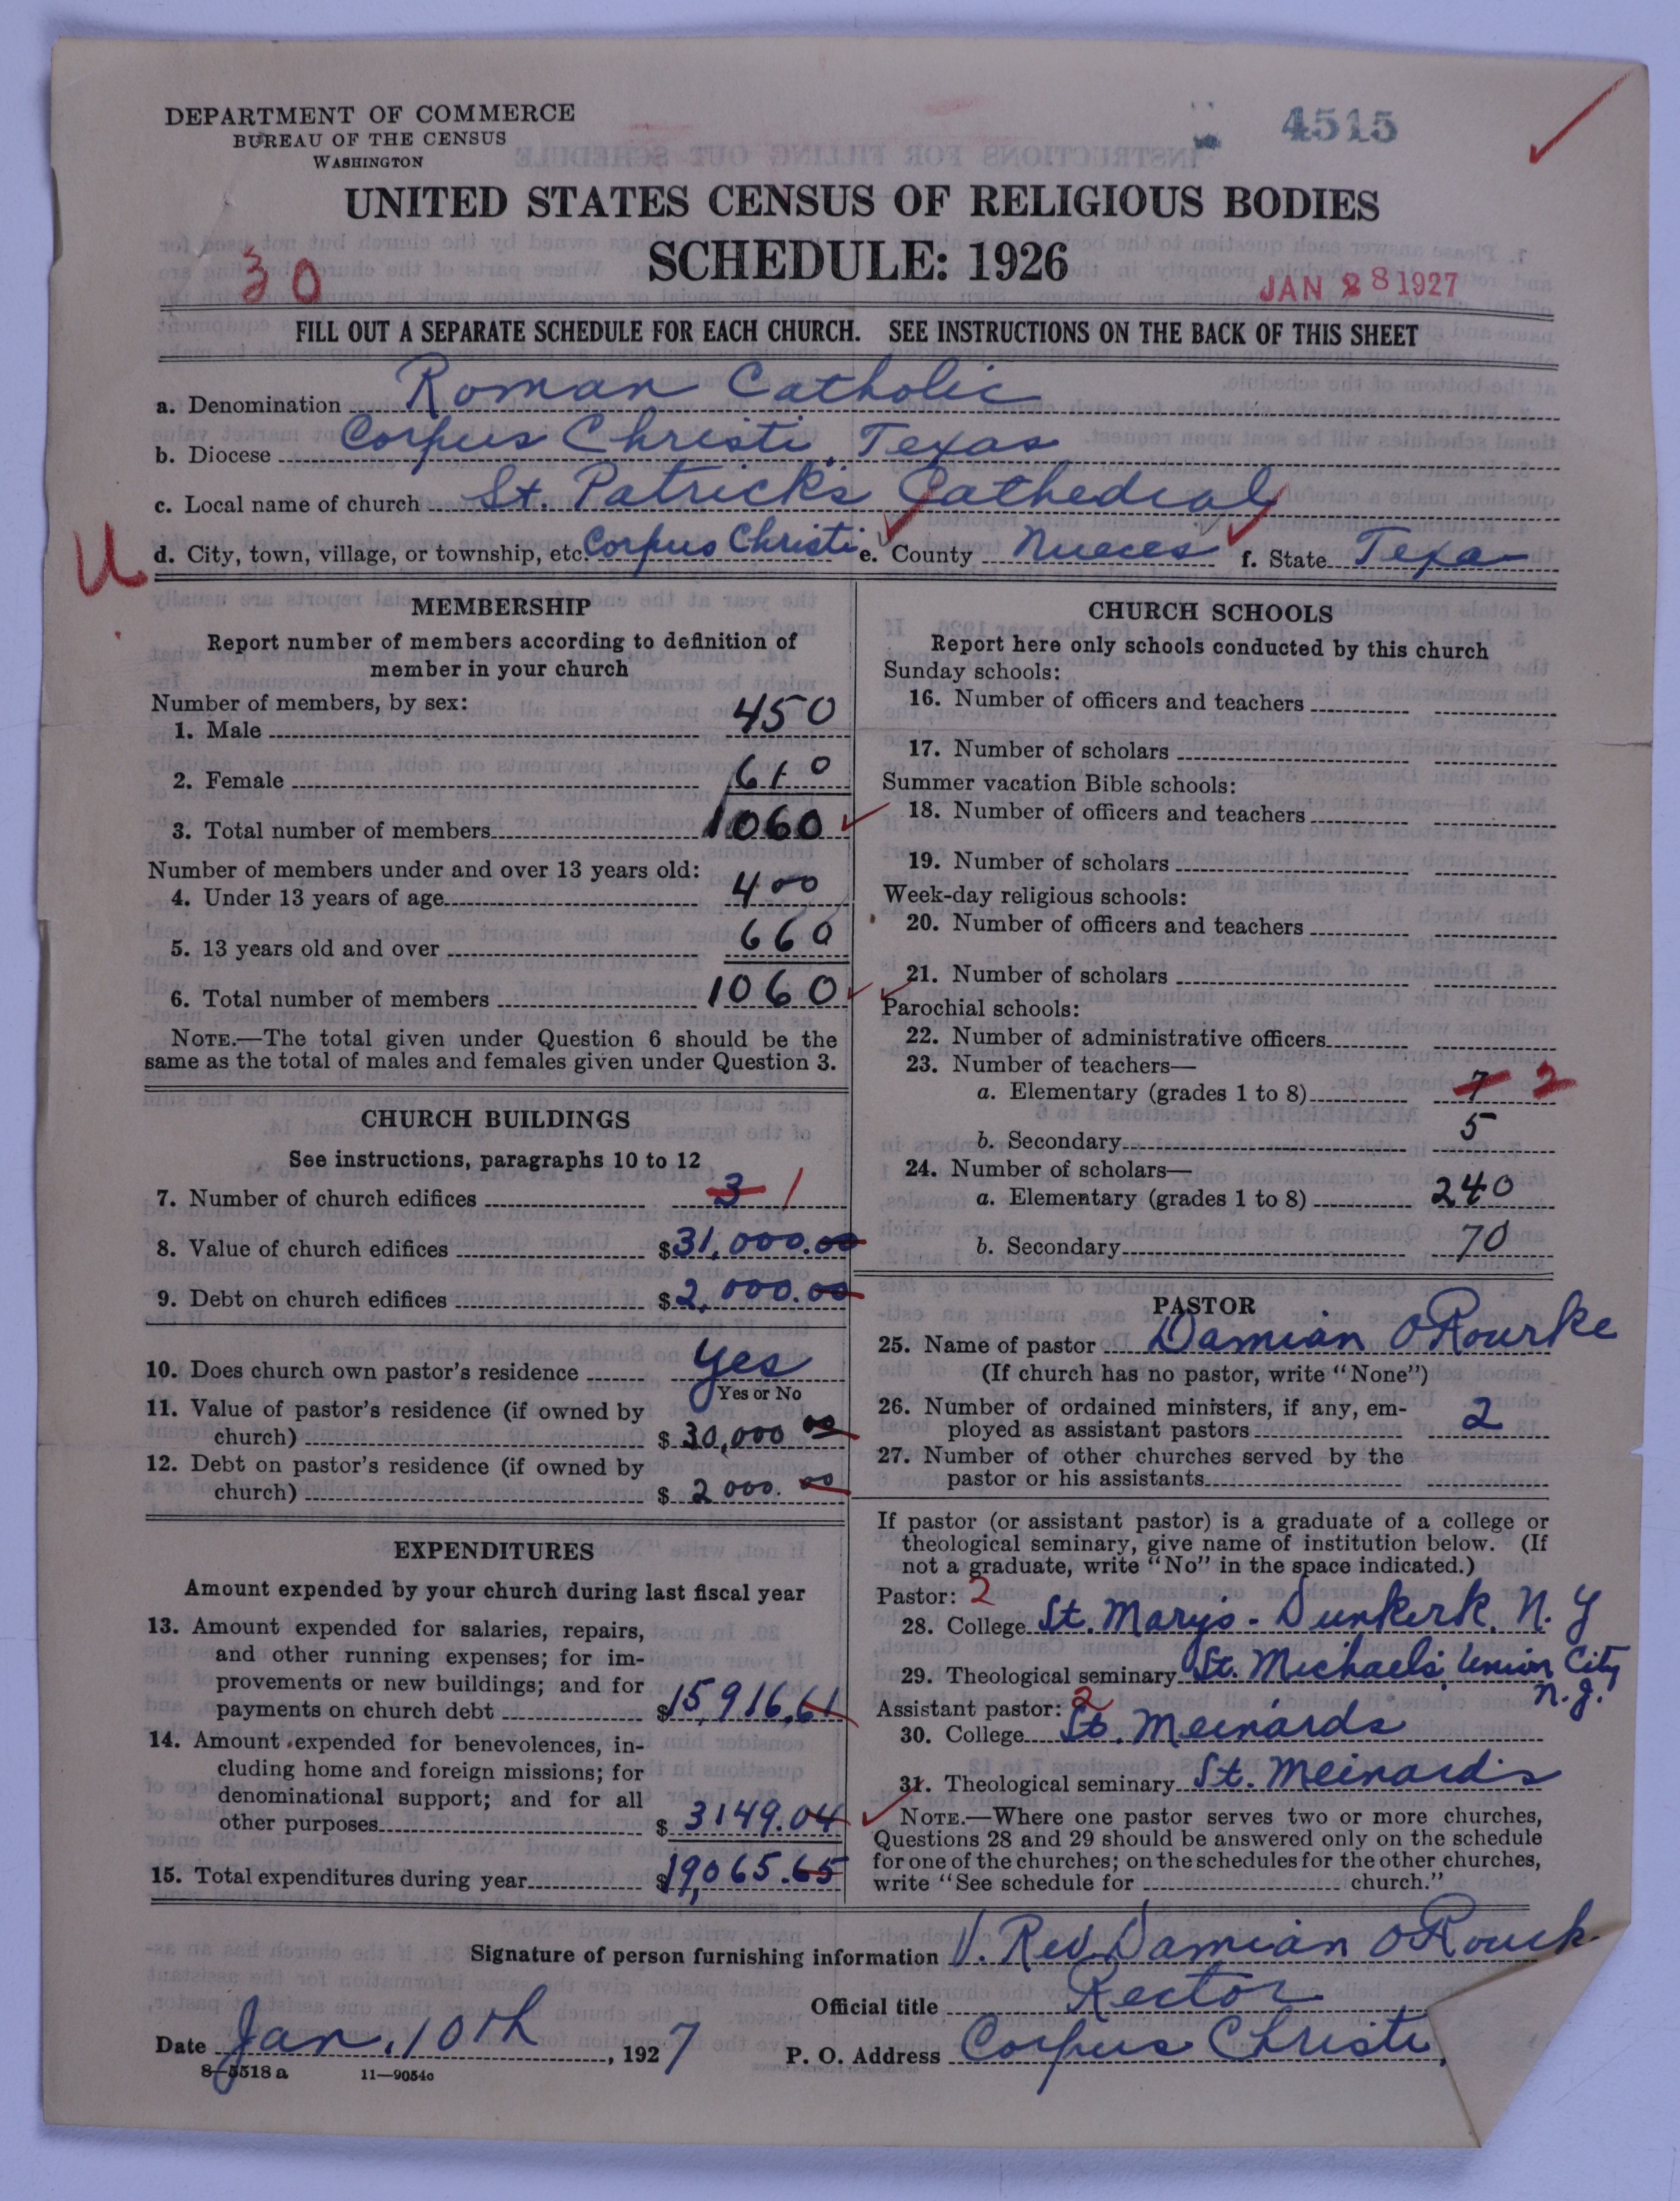 DEPARTMENT OF COMMERCE
BUREAU OF THE CENSUS
WASHINGTON
4515
UNITED STATES CENSUS OF RELIGIOUS BODIES
SCHEDULE: 1926
30
JAN 28 1927
FILL OUT A SEPARATE SCHEDULE FOR EACH CHURCH. SEE INSTRUCTIONS ON THE BACK OF THIS SHEET
a. Denomination Roman Catholic
b. Diocese Corpus Christi, Texas
c. Local name of church St. Patrick's Cathedral
U
d. City, town, village, or township, etc. Corpus Christi e. County Nueces f. State Texa
MEMBERSHIP
Report number of members according to definition of
member in your church
Number of members, by sex:
1. Male 450
2. Female 610
3. Total number of members 1060
Number of members under and over 13 years old:
4. Under 13 years of age 400
5. 13 years old and over 660
6. Total number of members 1060
NOTE.—The total given under Question 6 should be the
same as the total of males and females given under Question 3.
CHURCH BUILDINGS
See instructions, paragraphs 10 to 12
7. Number of church edifices 3 1
8. Value of church edifices $31,000.00
9. Debt on church edifices $2,000.00
10. Does church own pastor's residence Yes
Yes or No
11. Value of pastor's residence (if owned by
church) $30,000 00
12. Debt on pastor's residence (if owned by
church) $2000.00
EXPENDITURES
Amount expended by your church during last fiscal year
13. Amount expended for salaries, repairs,
and other running expenses; for im-
provements or new buildings; and for
payments on church debt $15,916.61
14. Amount expended for benevolences, in-
cluding home and foreign missions; for
denominational support; and for all
other purposes $3149.04
15. Total expenditures during year $19,065.65
CHURCH SCHOOLS
Report here only schools conducted by this church
Sunday schools:
16. Number of officers and teachers
17. Number of scholars
Summer vacation Bible schools:
18. Number of officers and teachers
19. Number of scholars
Week-day religious schools:
20. Number of officers and teachers
21. Number of scholars
Parochial schools:
22. Number of administrative officers
23. Number of teachers—
a. Elementary (grades 1 to 8) 7 2
b. Secondary 5
24. Number of scholars—
a. Elementary (grades 1 to 8) 240
b. Secondary 70
PASTOR
25. Name of pastor Damian O'Rourke
(If church has no pastor, write "None")
26. Number of ordained ministers, if any, em-
ployed as assistant pastors 2
27. Number of other churches served by the
pastor or his assistants
If pastor (or assistant pastor) is a graduate of a college or
theological seminary, give name of institution below. (If
not a graduate, write "No" in the space indicated.)
Pastor: 2
28. College St. Mary's - Dunkerk, N. Y
29. Theological seminary St. Michaels, Union City
N.J.
Assistant pastor: 2
30. College St. Meinards
31. Theological seminary St. Meinards
NOTE.—Where one pastor serves two or more churches,
Questions 28 and 29 should be answered only on the schedule
for one of the churches; on the schedules for the other churches,
write "See schedule for church."
Signature of person furnishing information V. Rev Damian O'Rourk
Official title Rector
Date Jan. 10th, 1927 P. O. Address Corpus Christi,
8-5518 a 11—9054c